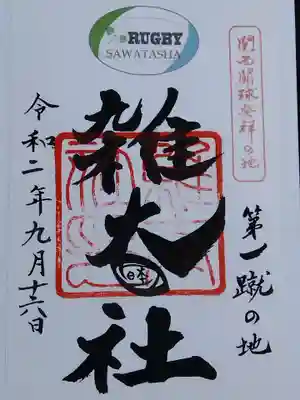 RUGBY
SAWATASHA
関西蹴球発祥の地
第一蹴の地
雑太社
日本
令和二年九月十六日